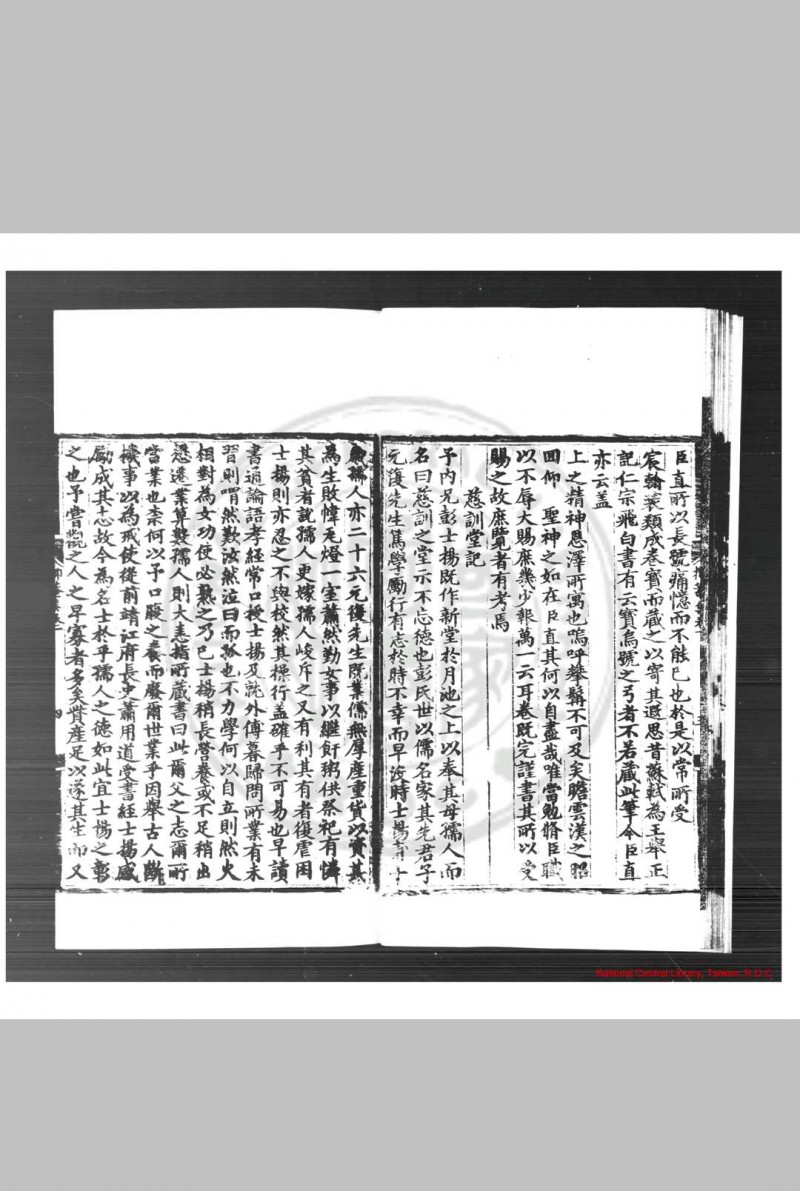 臣直所以長號痛憶而不能已也於是以常所受
宸翰裝類成卷寳而藏之以寄其遐思昔蘇軾為王舉正
記仁宗飛白書有云寳烏號之弓者不若藏此筆今臣直
亦云盖
上之精神恩澤所寓也嗚呼攀髯不可及矣瞻雲漢之昭
回仰 聖神之如在臣直其何以自盡哉唯當勉脩臣職
以不辱大賜庶幾少報萬一云耳卷既完謹書其所以受
賜之故庶覽者有考焉
慈訓堂記
予内兄彭士揚既作新堂於月池之上以奉其母孺人而
名曰慈訓之堂示不忘德也彭氏世以儒名家其先君子
元復先生篤學勵行有志於時不幸而早沒時士揚
孺人亦二十六元復先生既業儒無厚產重貨以資其
為生敗幃毛燈一室蕭然勤女事以繼飦粥供祭祀有憐
其貧者說孺人更嫁孺人峻斥之又有利其有者復虐困
士揚則亦忍之不與校然其操行盖確乎不可易也早讀
書通論語孝經常口授士揚及就外傅暮歸問所業有未
習則喟然歎泫然泣曰而孤也不力學何以自立則然火
相對為女功使必熟之乃已士揚稍長營養或不足稍出
遊遷業算數孺人則大恚指所藏書曰此爾父之志爾所
當業也柰何以予口腹之養而廢爾世業乎因舉古人斷
機事以為戒使從前靖江府長史蕭用道受書經士揚感
勵成其志故今為名士於乎孺人之德如此宜士揚之彰
之也予嘗觀之人之早寡者多矣貲產足以遂其生而又
National Central Library, Taiwan R.O.C